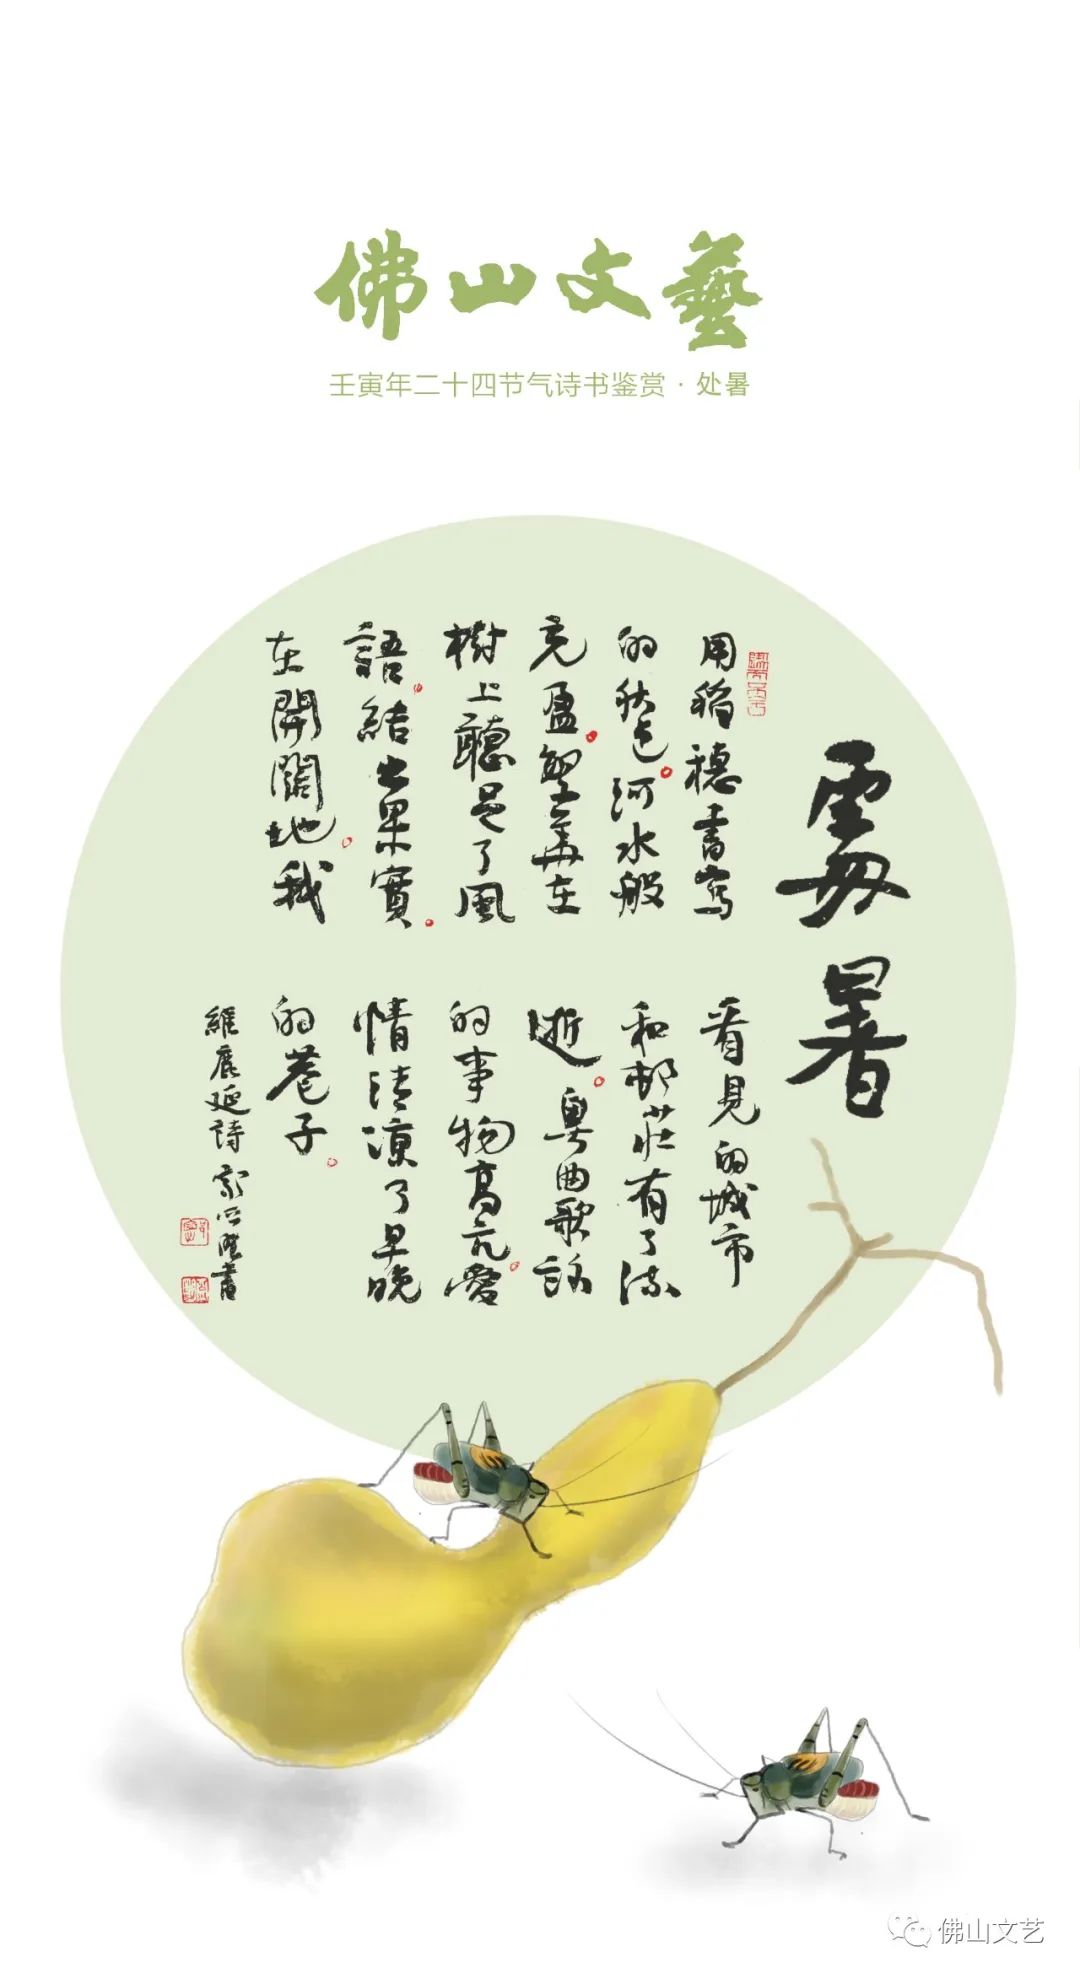 佛山文藝
壬寅年二十四节气诗书鉴赏·处暑
處暑
用稻穗書寫
的秋色。河水般
充盈。在
樹上聽足了風
語。結出果實。
在開闊地。我
看見的城市
和邨莊有了流
逝。粵曲歌詠
的事物高亢。愛
情清涼了早晚
的巷子。
維鹿延詩 書
佛山文艺